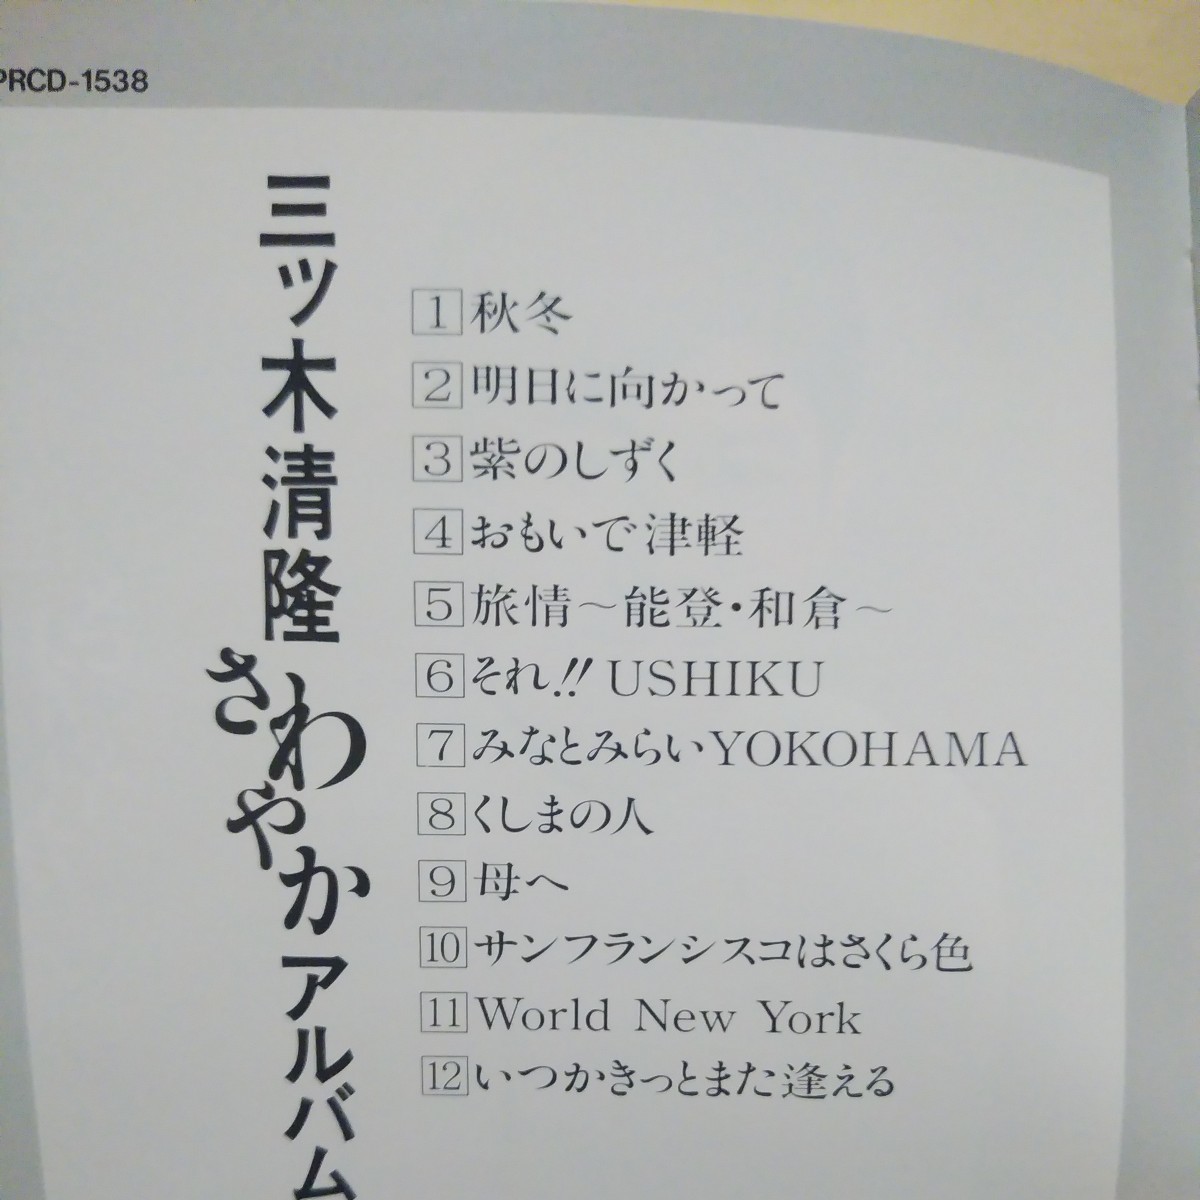 PRCD-1538
三ツ木清隆さわやかアルバム
1 秋冬
2 明日に向かって
3 紫のしずく
4 おもいで津軽
5 旅情〜能登・和倉〜
6 それ!! USHIKU
7 みなとみらいYOKOHAMA
8 くしまの人
9 母へ
10 サンフランシスコはさくら色
11 World New York
12 いつかきっとまた逢える